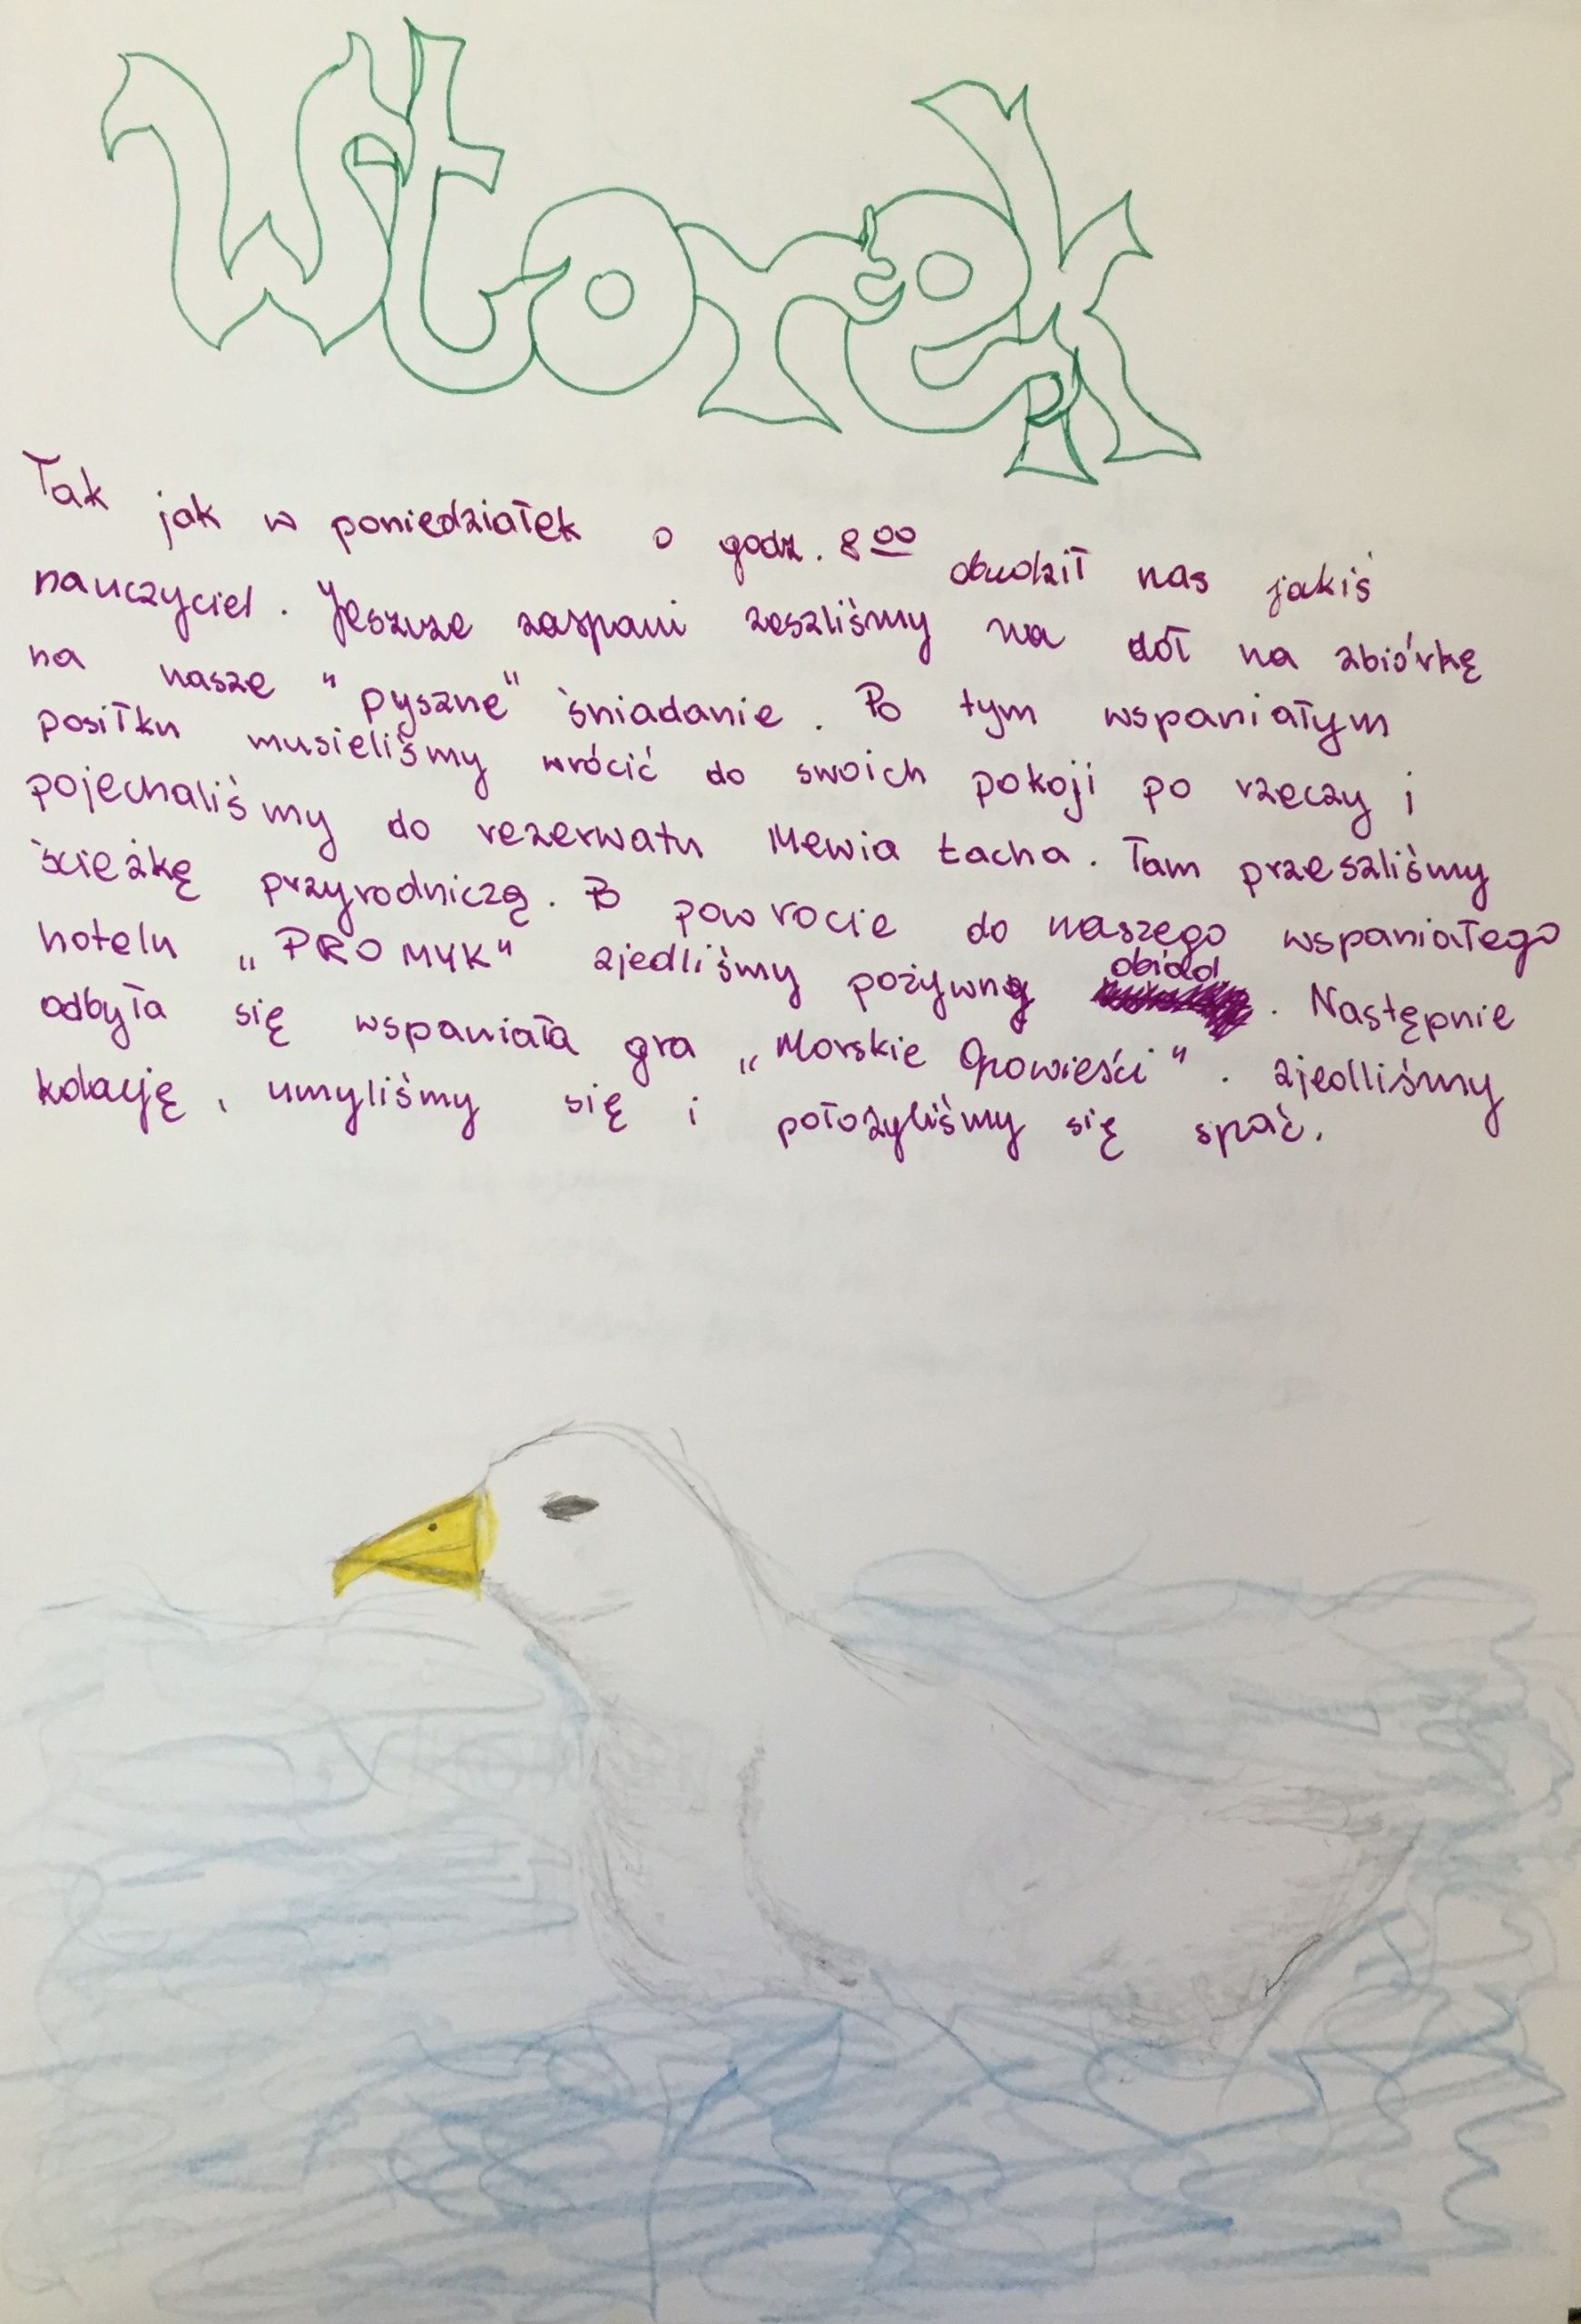 Wtorek
Tak jak w poniedziałek o godz. 8 00 obudził nas jakiś
nauczyciel. Jeszcze zaspani zeszliśmy na dół na zbiórkę
na nasze "pyszne" śniadanie. Po tym wspaniałym
posiłku musieliśmy wrócić do swoich pokoji po rzeczy i
pojechaliśmy do rezerwatu Mewia Łacha. Tam przeszliśmy
ścieżkę przyrodniczą. Po powrocie do naszego wspaniałego
hotelu „PROMYK" zjedliśmy pożywny obiad. Następnie
odbyła się wspaniała gra „Morskie Opowieści". zjedliśmy
kolację, umyliśmy się i położyliśmy się spać.